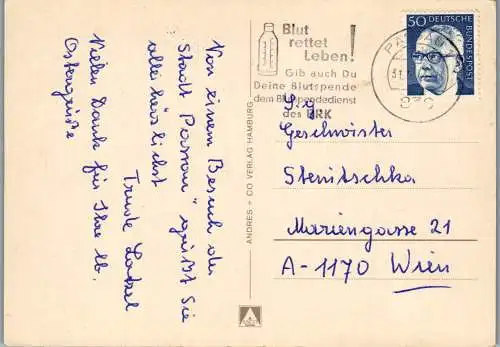 Von einem Besuch der
Stadt Passau" grüßt Sie
alle herzlichst
Trude
Vielen Dank für Ihre lb.
Ostergrüße
ANDRES + CO VERLAG HAMBURG
Blut
rettet
Leben!
Gib auch Du
Deine Blutspende
dem Blutspendedienst
des BRK
50 DEUTSCHE BUNDESPOST
Geschwister
Stenitschka
Mariengasse 21
A-1170 Wien